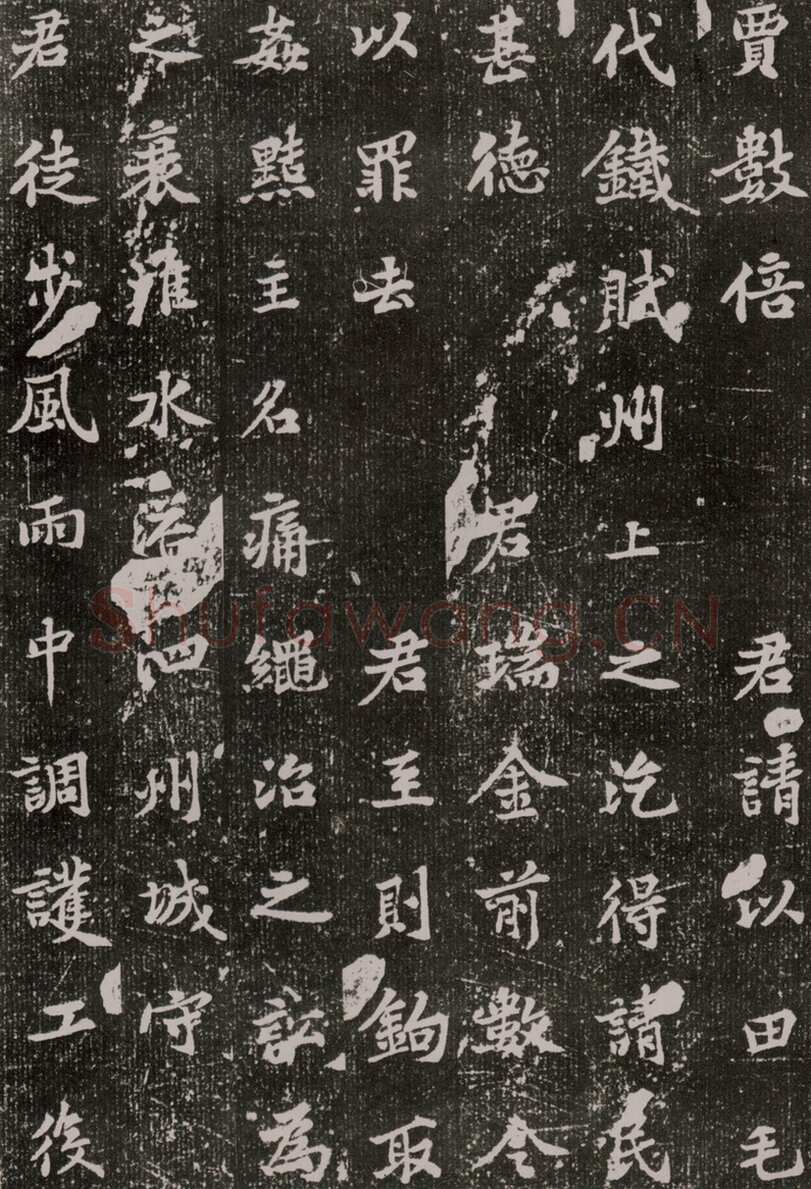 賈數倍 君請以田毛
代鐵賦州上之汔得請民
甚德 君瑞金前數令
以罪去 君至則鉤取
姦黠主名痛繩治之訖為
之衰淮水泗州城守
君徒步風雨中調護工役
Shufawang.CN